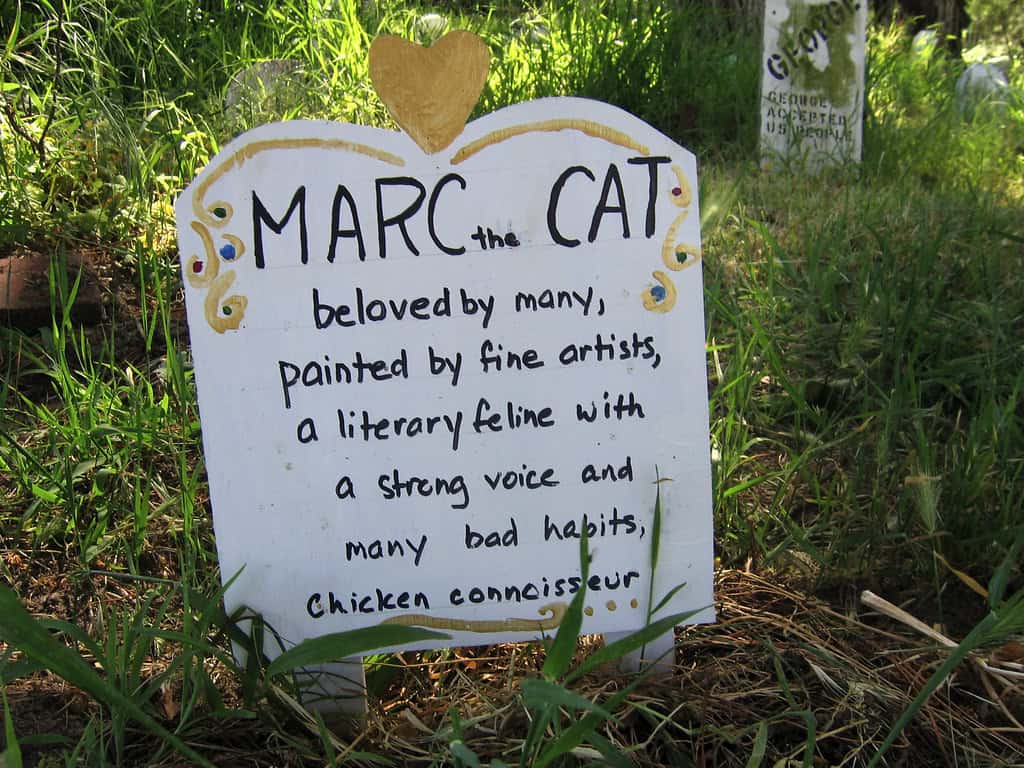 MARC the CAT
beloved by many,
painted by fine artists,
a literary feline with
a strong voice and
many bad habits,
chicken connoisseur
GEORGE
GEORGE
ACCEPTED
US PEOPLE